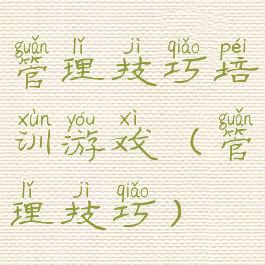 guǎn lǐ jì qiǎo péi
管理技巧培
xùn yóu xì guǎn
训游戏（管
lǐ jì qiǎo
理技巧）